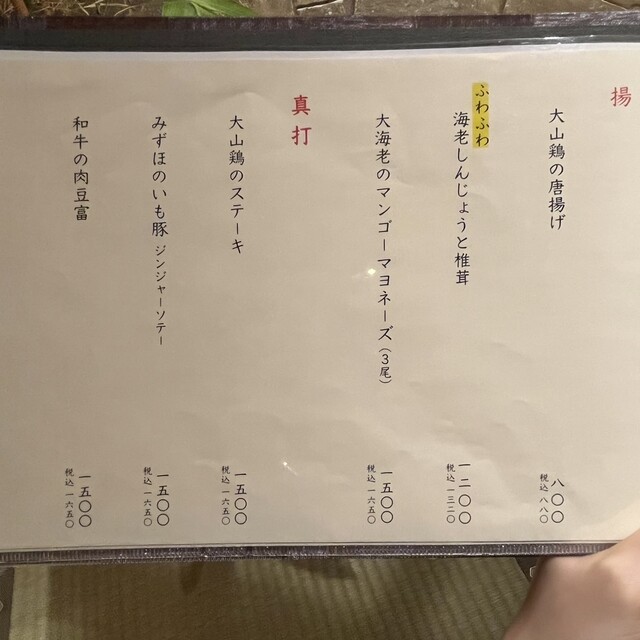 揚
大山鶏の唐揚げ
八〇〇
税込 八八〇
ふわふわ
海老しんじょうと椎茸
一二〇〇
税込 一三二〇
大海老のマンゴーマヨネーズ（３尾）
一五〇〇
税込 一六五〇
真打
大山鶏のステーキ
一五〇〇
税込 一六五〇
みずほのいも豚 ジンジャーソテー
一五〇〇
税込 一六五〇
和牛の肉豆富
一五〇〇
税込 一六五〇